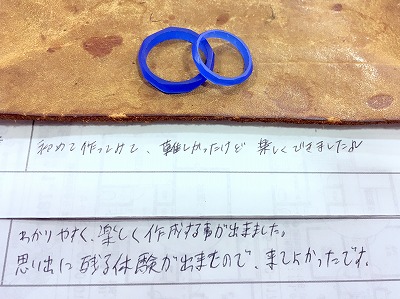 初めて作ってみて、難しかったけど 楽しくできました♪
わかりやすく、楽しく作成する事が出来ました。
思い出に残る体験が出来たので、来てよかったです。